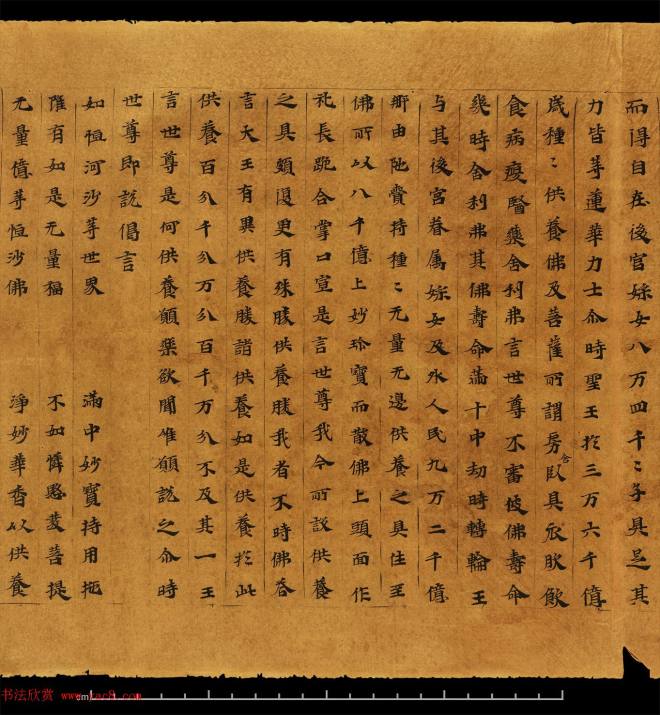 而得自在後宮婇女八万四千〻子具足其
力皆等蓮華力士尒時聖王於三万六千億
歲種〻供養佛及菩薩所謂房舍臥具衣服飲
食病瘦醫藥舍利弗言世尊不審彼佛壽命
幾時舍利弗其佛壽命滿十中劫時轉輪王
与其後宮眷属婇女及外人民九万二千億
那由他賷持種〻无量无邊供養之具往至
佛所以八千億上妙珎寶而散佛上頭面作
礼長跪合掌口宣是言世尊我今所設供養
之具頗復更有殊勝供養勝我者不時佛荅
言大王有異供養勝諸供養如是供養於此
供養百分千分万分百千万分不及其一王
言世尊是何供養願樂欲聞唯願說之尒時
世尊即說偈言
如恒河沙等世界 滿中妙寶持用施
雖有如是无量福 不如憐愍發菩提
无量億等恒沙佛 淨妙華香以供養
书法欣赏 www.yac8.com
cm